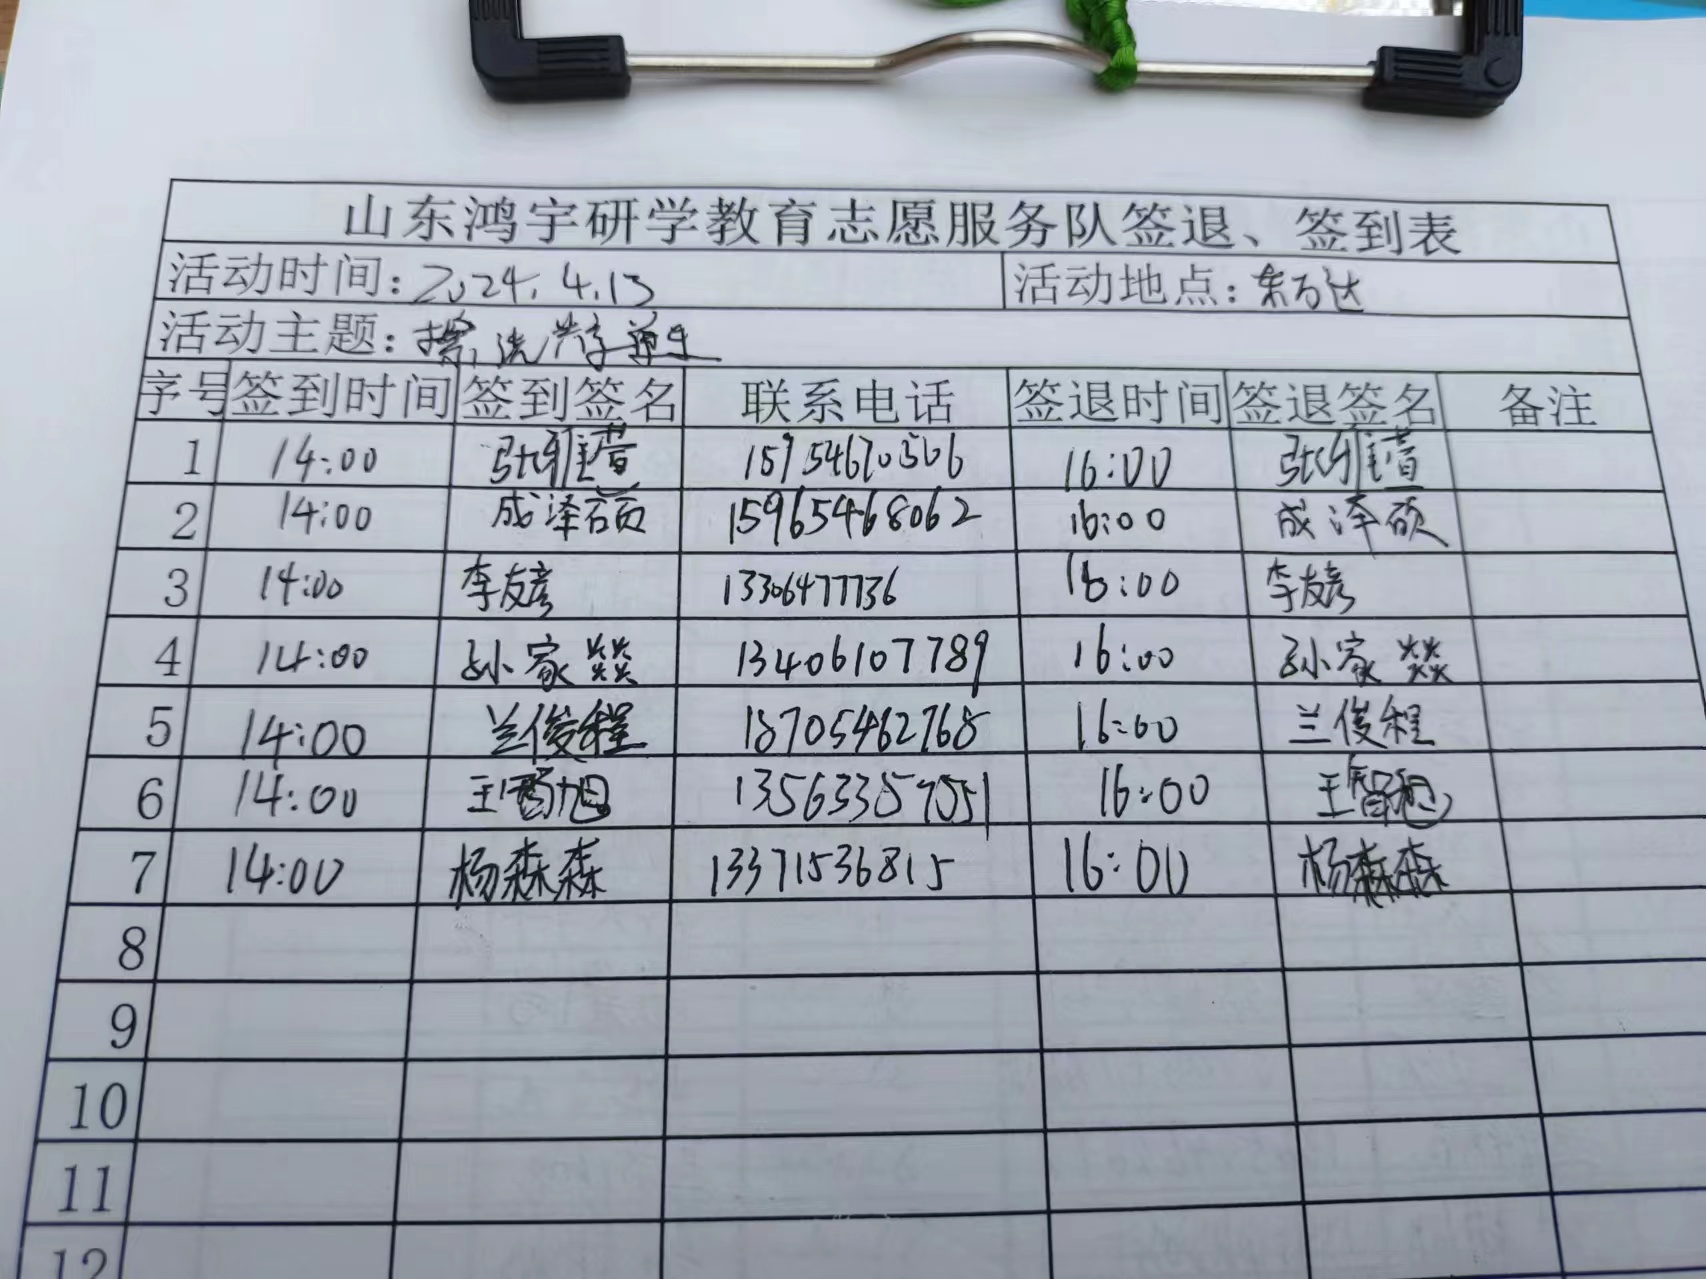 山东鸿宇研学教育志愿服务队签退、签到表
活动时间：2024.4.13 活动地点：东万达
活动主题：擦洗共享单车
序号 签到时间 签到签名 联系电话 签退时间 签退签名 备注
1 14:00 张雅萱 15954670506 16:00 张雅萱
2 14:00 成泽硕 15965468062 16:00 成泽硕
3 14:00 李友彦 13306477736 16:00 李友彦
4 14:00 孙家燚 13406107789 16:00 孙家燚
5 14:00 兰俊程 18705462768 16:00 兰俊程
6 14:00 王智旭 16:00 王智旭
7 14:00 杨森森 13371536815 16:00 杨森森
8
9
10
11
12